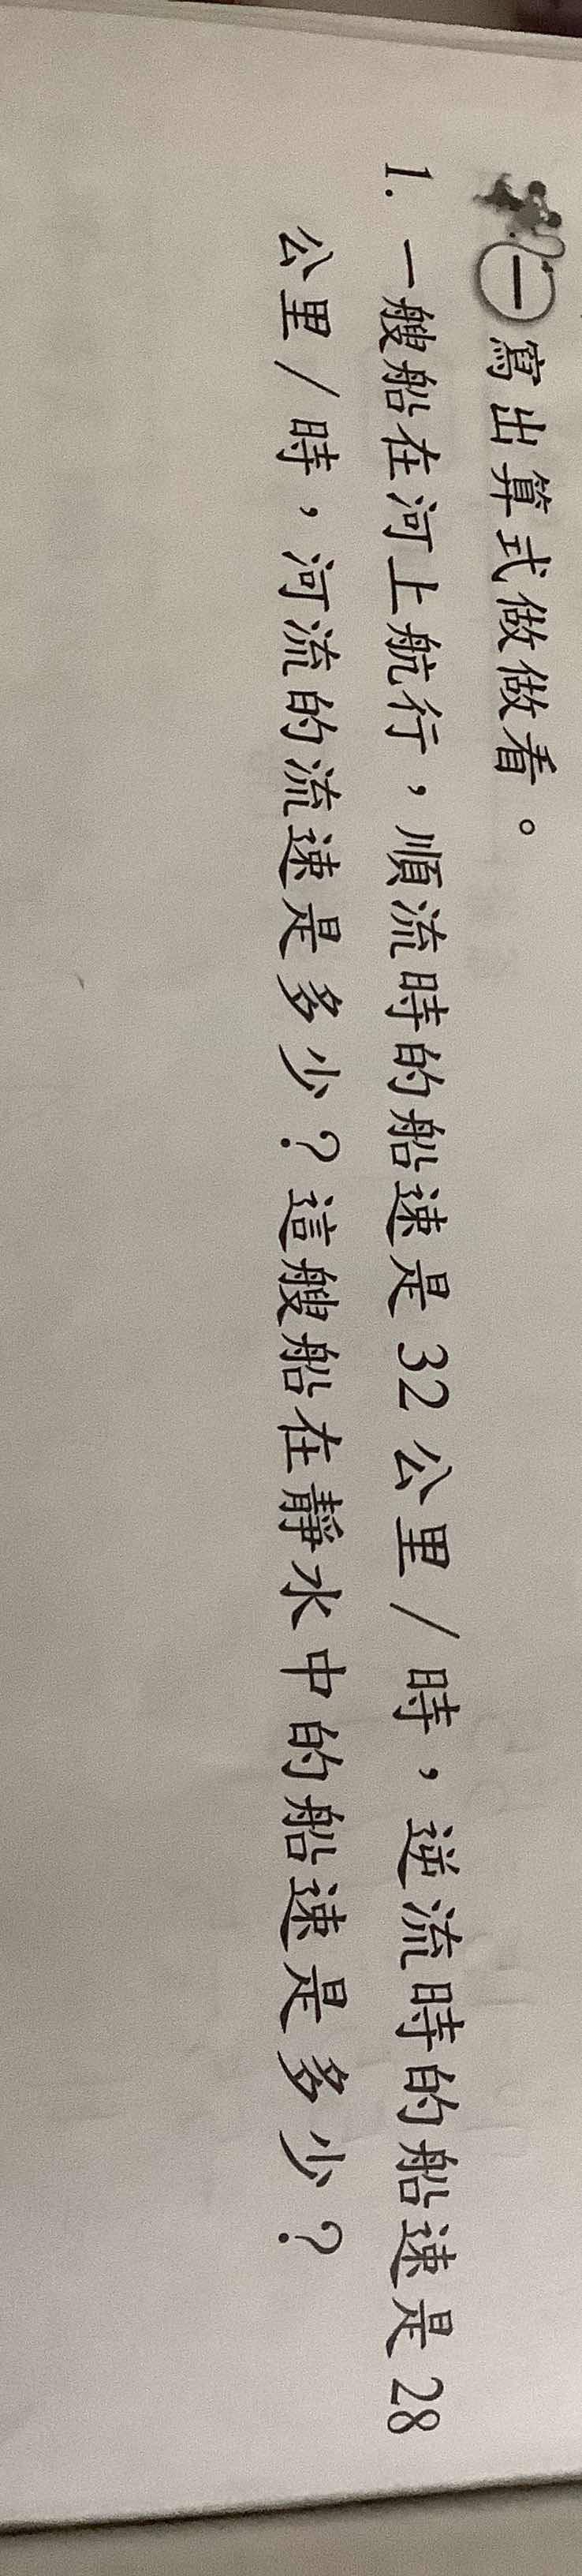 ㊀寫出算式做做看。
1. 一艘船在河上航行，順流時的船速是32公里/時，逆流時的船速是28
公里/時，河流的流速是多少？這艘船在靜水中的船速是多少？